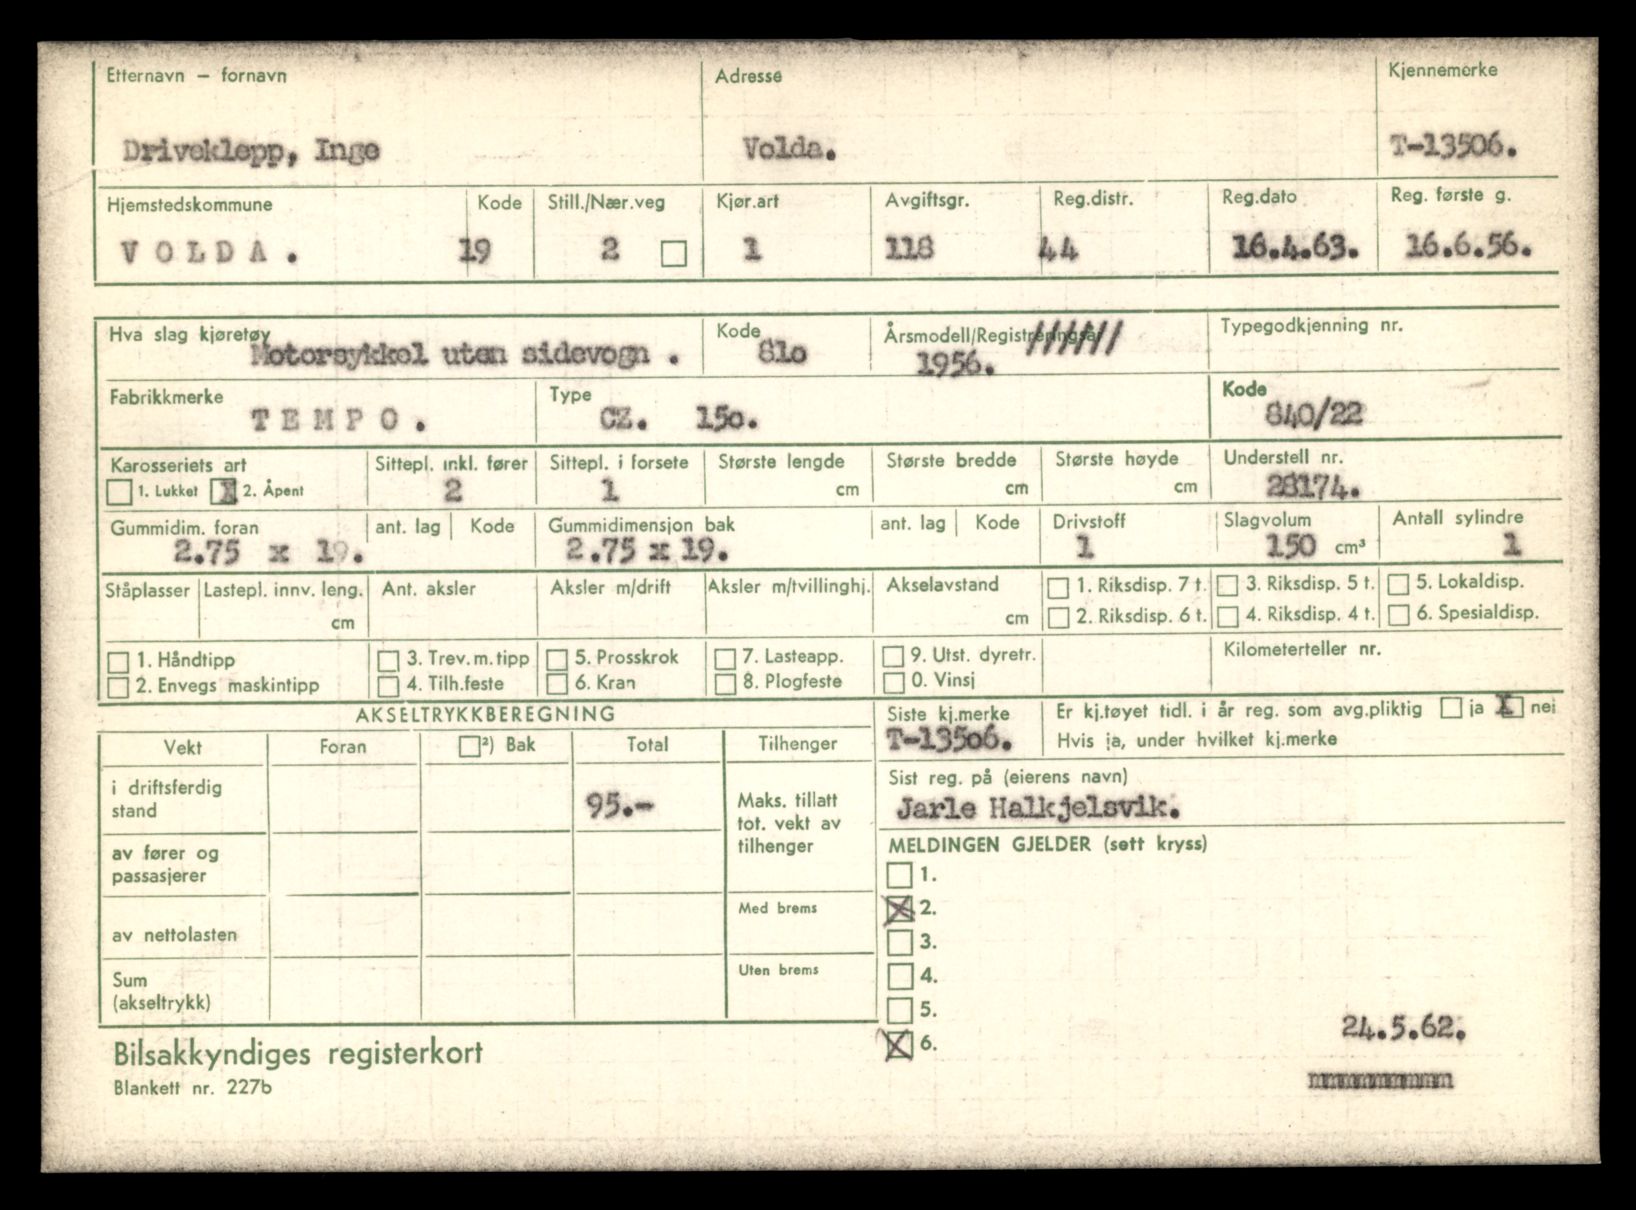 Etternavn – fornavn Adresse Kjennemerke
Driveklepp, Inge Volda. T-13506.
Hjemstedskommune Kode Still./Nær.veg Kjør.art Avgiftsgr. Reg.distr. Reg.dato Reg. første g.
VOLDA. 19 2 1 118 44 16.4.63. 16.6.56.
Hva slag kjøretøy Kode Årsmodell/Registreringsår Typegodkjenning nr.
Motorsykkel uten sidevogn . 81o 1956.
Fabrikkmerke Type Kode
TEMPO. CZ. 15o. 840/22
Karosseriets art Sittepl. inkl. fører Sittepl. i forsete Største lengde Største bredde Største høyde Understell nr.
1. Lukket X 2. Åpent 2 1 cm cm cm 28174.
Gummidim. foran ant. lag Kode Gummidimensjon bak ant. lag Kode Drivstoff Slagvolum Antall sylindre
2.75 x 19. 2.75 x 19. 1 150 cm³ 1
Ståplasser Lastepl. innv. leng. Ant. aksler Aksler m/drift Aksler m/tvillinghj. Akselavstand 1. Riksdisp. 7 t. 3. Riksdisp. 5 t. 5. Lokaldisp.
cm cm 2. Riksdisp. 6 t. 4. Riksdisp. 4 t. 6. Spesialdisp.
1. Håndtipp 3. Trev.m.tipp 5. Prosskrok 7. Lasteapp. 9. Utst. dyretr. Kilometerteller nr.
2. Envegs maskintipp 4. Tilh.feste 6. Kran 8. Plogfeste 0. Vinsj
AKSELTRYKKBEREGNING Siste kj.merke Er kj.tøyet tidl. i år reg. som avg.pliktig ja X nei
T-13506. Hvis ja, under hvilket kj.merke
Vekt Foran ²) Bak Total Tilhenger
Sist reg. på (eierens navn)
i driftsferdig
stand 95.- Maks. tillatt
tot. vekt av
tilhenger
Jarle Halkjelsvik.
MELDINGEN GJELDER (sett kryss)
av fører og
passasjerer
1.
Med brems X 2.
av nettolasten 3.
Uten brems 4.
Sum
(akseltrykk)
5.
24.5.62.
X 6.
Bilsakkyndiges registerkort
Blankett nr. 227b